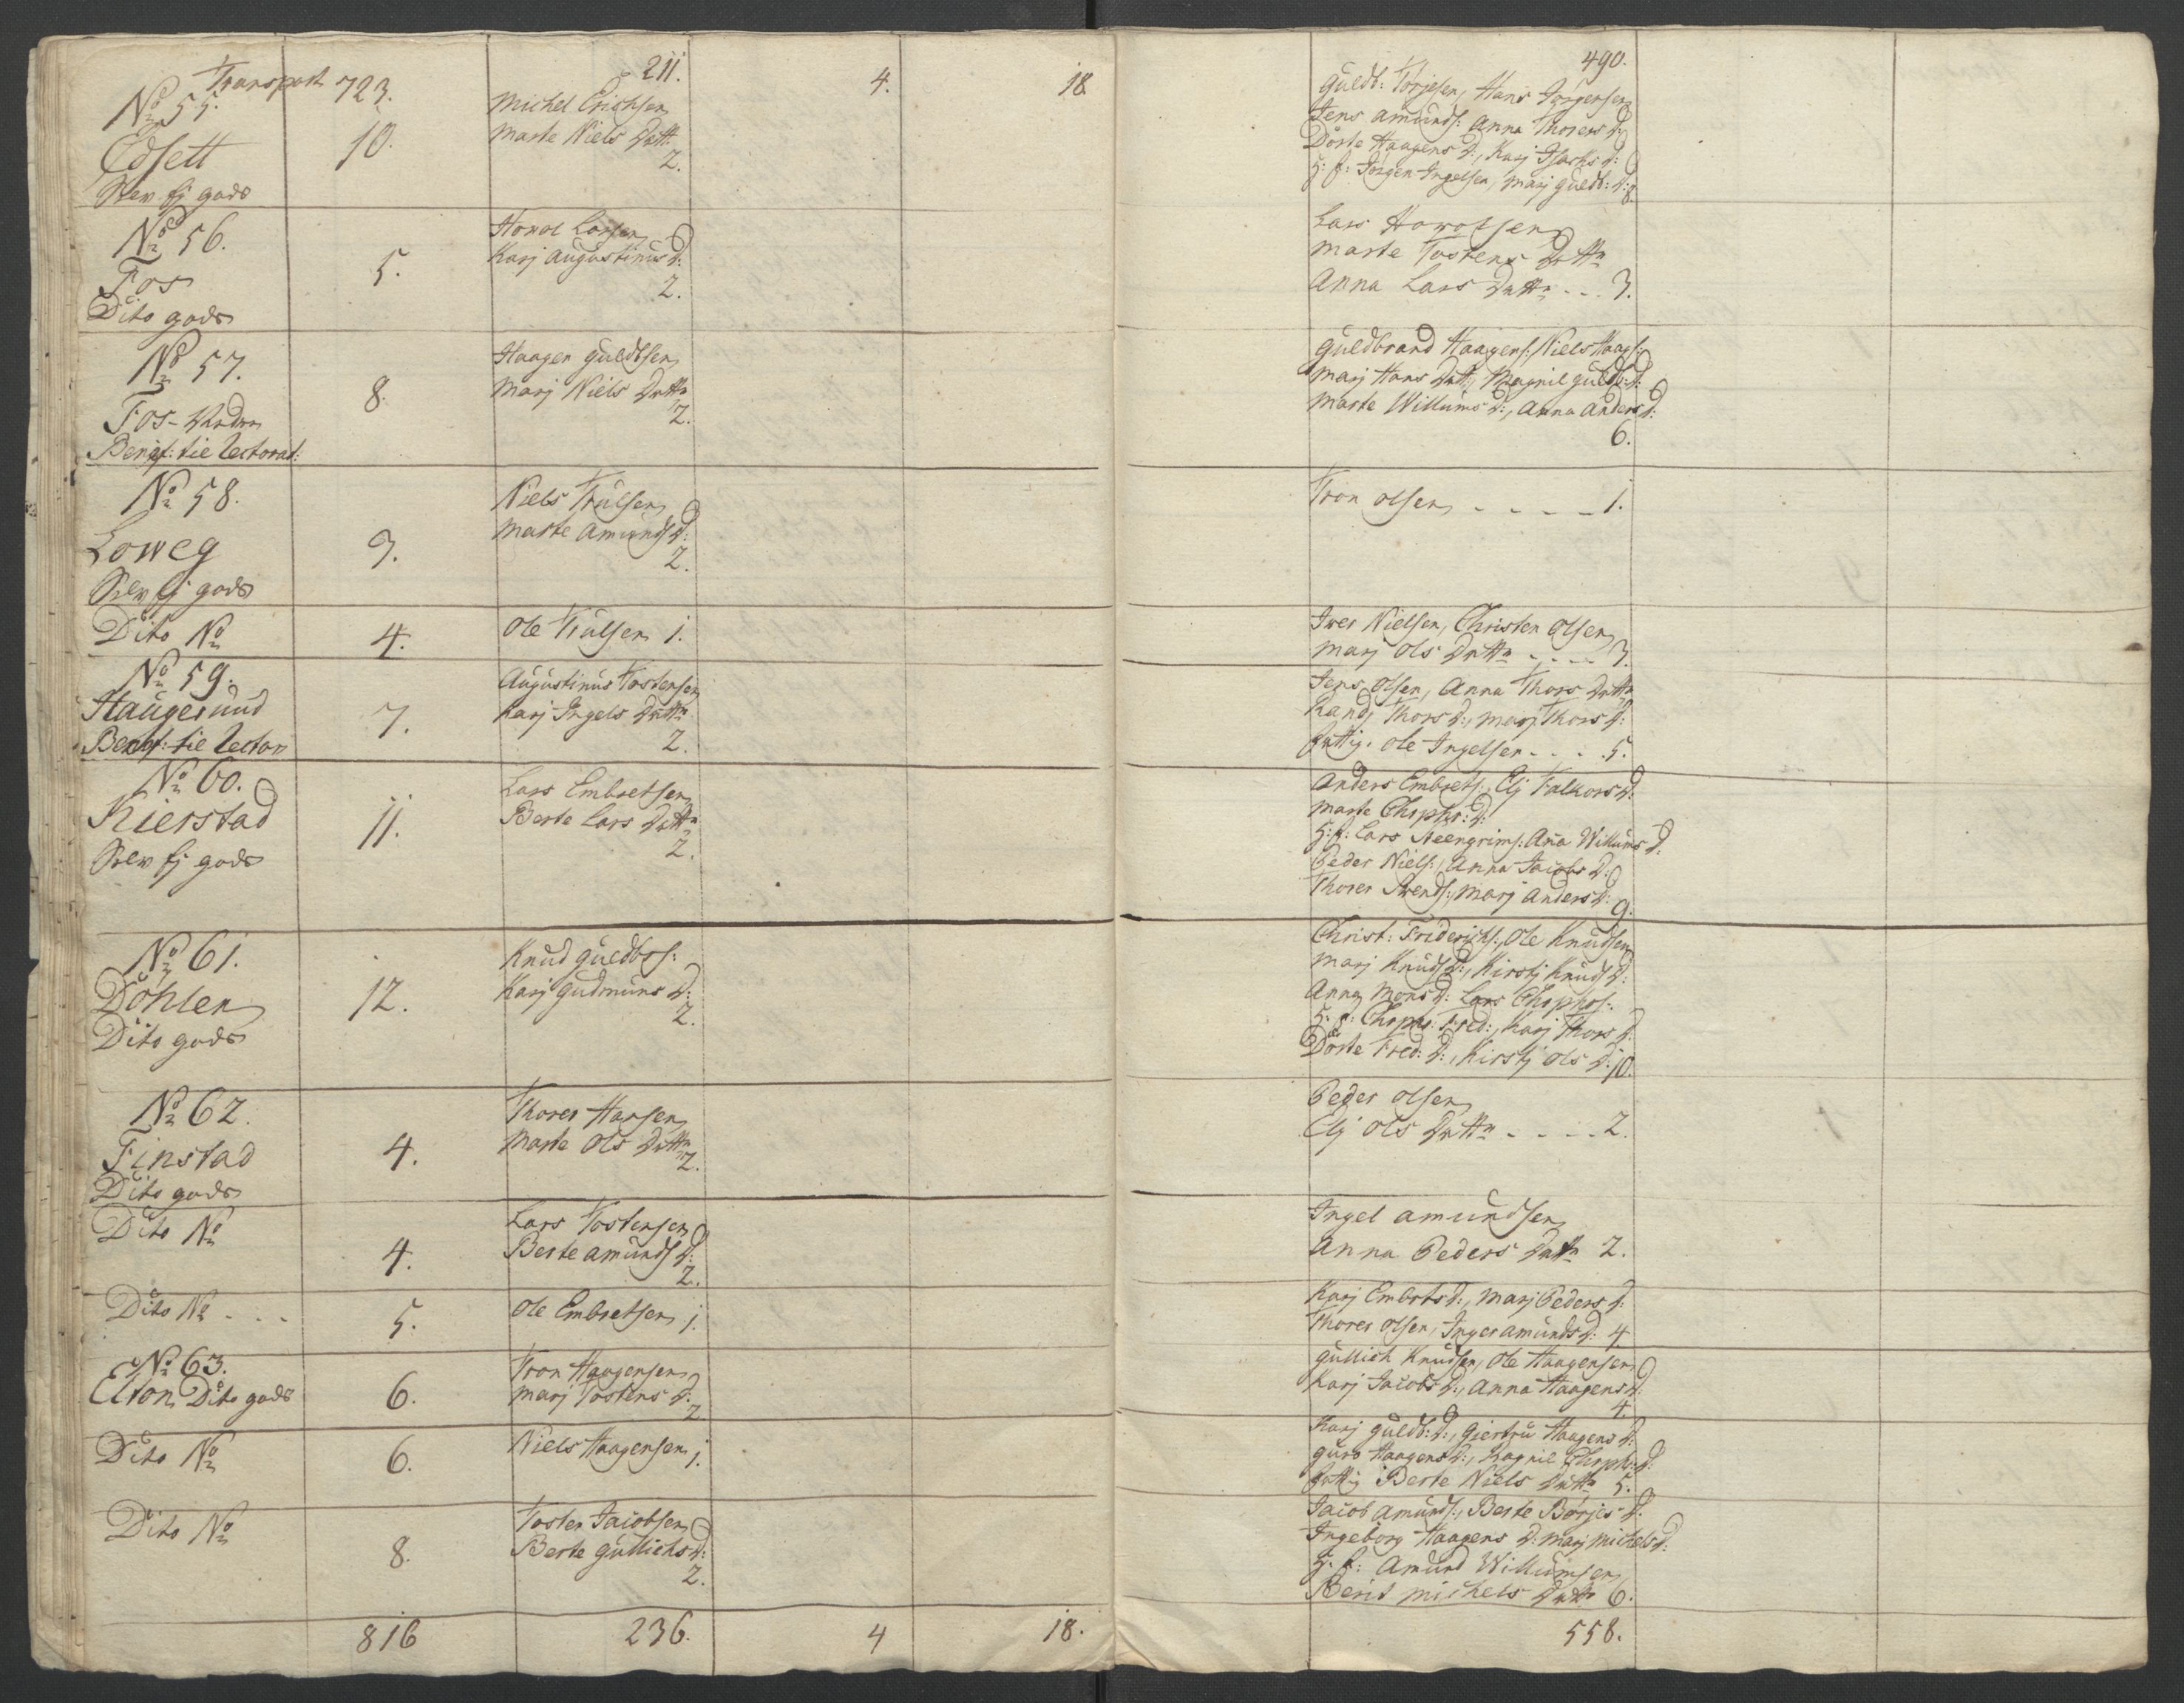 Transport 723. 211. 4. 18. 490.
No 55.
Edsett
Selv Ej gods
10.
Michel Erichsen
Marte Niels Datt
2.
Guldb: Torjesen, Hans Jørgensen
Jens Amunds: Anna Thorers D:
Dorte Haagens D:, Karj Isachs D:
H: f: Jørgen Ingelsen, Marj Guldb: D: 8.
No 56.
Fos
Dito gods
5.
Howol Larsen
Karj Augustinus D:
2.
Lars Howolsen
Marte Tostens Dattr
Anna Lars Dattr - - 3.
No 57.
Fos-
Benif: tie Lectorat:
8.
Haagen Guldbsen
Marj Niels Dattr
2.
Guldbrand Haagens: Niels Haags:
Marj Hans Datt:, Magnil Guldb: D:
Marte Willums D:, Anna Anders D:
6.
No 58.
Loweg
Selv Ej gods
3.
Niels Trulsen
Marte Amunds D:
2.
Tron Olsen - - - - 1.
Dito No
4.
Ole Trulsen 1.
Iwer Nielsen, Christen Olsen
Marj Ols Dattr - - - - 3.
No 59.
Haugerund
Benif: tie Lector
7.
Augustinus Tostensen
Karj Ingels Dattr
2.
Jens Olsen, Anna Thors Dattr
Randj Thors D:, Marj Thors D:
fattig. Ole Ingelsen - - - 5.
No 60.
Kierstad
Selv Ej gods
11.
Lars Embretsen
Berte Lars Dattr
2.
Anders Embrets:, Elj Falkors D:
Marte Chrphr: D:
H: f: Lars Steengrims: Aña Willums D:
Peder Niels:, Anna Jacobs D:
Thorer Swends:, Marj Anders D: 9.
No 61.
Døhlen
Dito gods
12.
Knud Guldbrs:
Karj Gudmuns D:
2.
Christ: Friderichs:, Ole Knudsen
Marj Knuds D:, Kirstj Knuds D:
Anna Mons D: Lars Chrphrs:
H: f: Chrphr: Fred:, Karj Thors D:
Dorte Fred: D:, Kirstj Ols D: 10.
No 62.
Finstad
Dito gods
4.
Thorer Hansen
Marte Ols Dattr
2.
Peder Olsen
Elj Ols Dattr - - - - 2.
Dito No
4.
Lars Tostensen
Berte Amunds D:
2.
Ingel Amundsen
Anna Peders Dattr 2.
Dito No - - -
5.
Ole Embretsen 1.
Karj Embrts D:, Marj Peders D:
Thorer Olsen, Inger Amunds D: 4.
No 63.
Elton Dito gods
6.
Tron Haagensen
Marj Tostens D:
2.
Gullich Knudsen, Ole Haagensen
Karj Jacobs D:, Anna Haagens D:
4.
Dito No
6.
Niels Haagensen 1.
Karj Guldb: D:, Giertru Haagens D:
Guro Haagens D:, Ragnil Chrph: D:
fattig Berte Niels Dattr 5.
Dito No
8.
Tosten Jacobsen
Berte Gullichs D:
2.
Jacob Amunds:, Berte Børjes D:
Ingeborg Haagens D: Marj Michels D:
H: f: Amund Willumsen
Berit Michels Dattr 6.
816 236. 4 18. 558.